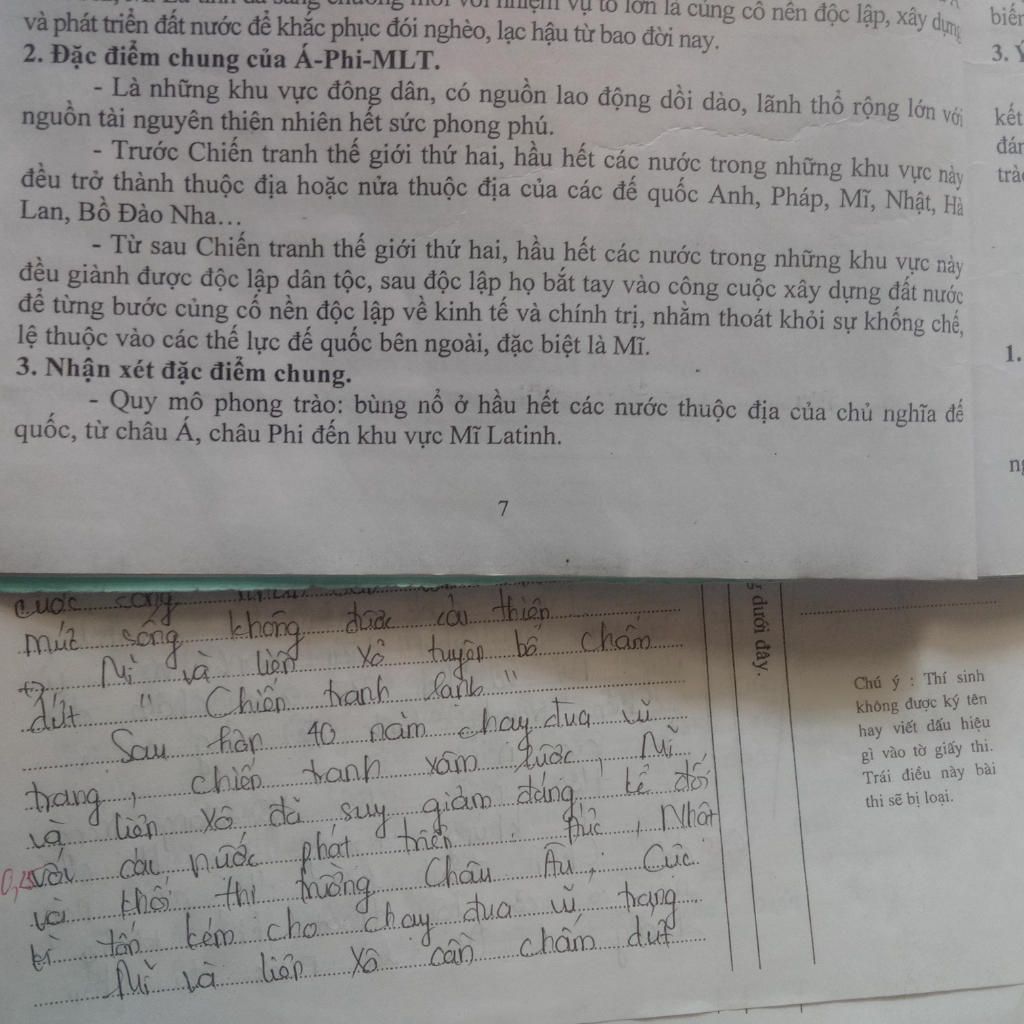 và phát triển đất nước để khắc phục đói nghèo, lạc hậu từ bao đời nay.
2. Đặc điểm chung của Á-Phi-MLT.
- Là những khu vực đông dân, có nguồn lao động dồi dào, lãnh thổ rộng lớn với
nguồn tài nguyên thiên nhiên hết sức phong phú.
- Trước Chiến tranh thế giới thứ hai, hầu hết các nước trong những khu vực này
đều trở thành thuộc địa hoặc nửa thuộc địa của các đế quốc Anh, Pháp, Mĩ, Nhật, Hà
Lan, Bồ Đào Nha...
- Từ sau Chiến tranh thế giới thứ hai, hầu hết các nước trong những khu vực này
đều giành được độc lập dân tộc, sau độc lập họ bắt tay vào công cuộc xây dựng đất nước
để từng bước củng cố nền độc lập về kinh tế và chính trị, nhằm thoát khỏi sự khống chế,
lệ thuộc vào các thế lực đế quốc bên ngoài, đặc biệt là Mĩ.
3. Nhận xét đặc điểm chung.
- Quy mô phong trào: bùng nổ ở hầu hết các nước thuộc địa của chủ nghĩa đế
quốc, từ châu Á, châu Phi đến khu vực Mĩ Latinh.
7
biến
3.
kết
1.
cuộc sống
mức sống không được cải thiện
+) Mĩ và liên Xô tuyên bố chấm
dứt " Chiến tranh lạnh "
Sau hơn 40 năm chạy đua vũ
trang, chiến tranh xâm lược, Mĩ
và liên Xô đã suy giảm đáng kể đối
với các nước phát triển Đức, Nhật
và khối thị trường Châu Âu, Cực
kì tốn kém cho chạy đua vũ trang
Mĩ và liên Xô cần chấm dứt
dưới đây.
Chú ý : Thí sinh
không được ký tên
hay viết dấu hiệu
gì vào tờ giấy thi.
Trái điều này bài
thi sẽ bị loại.